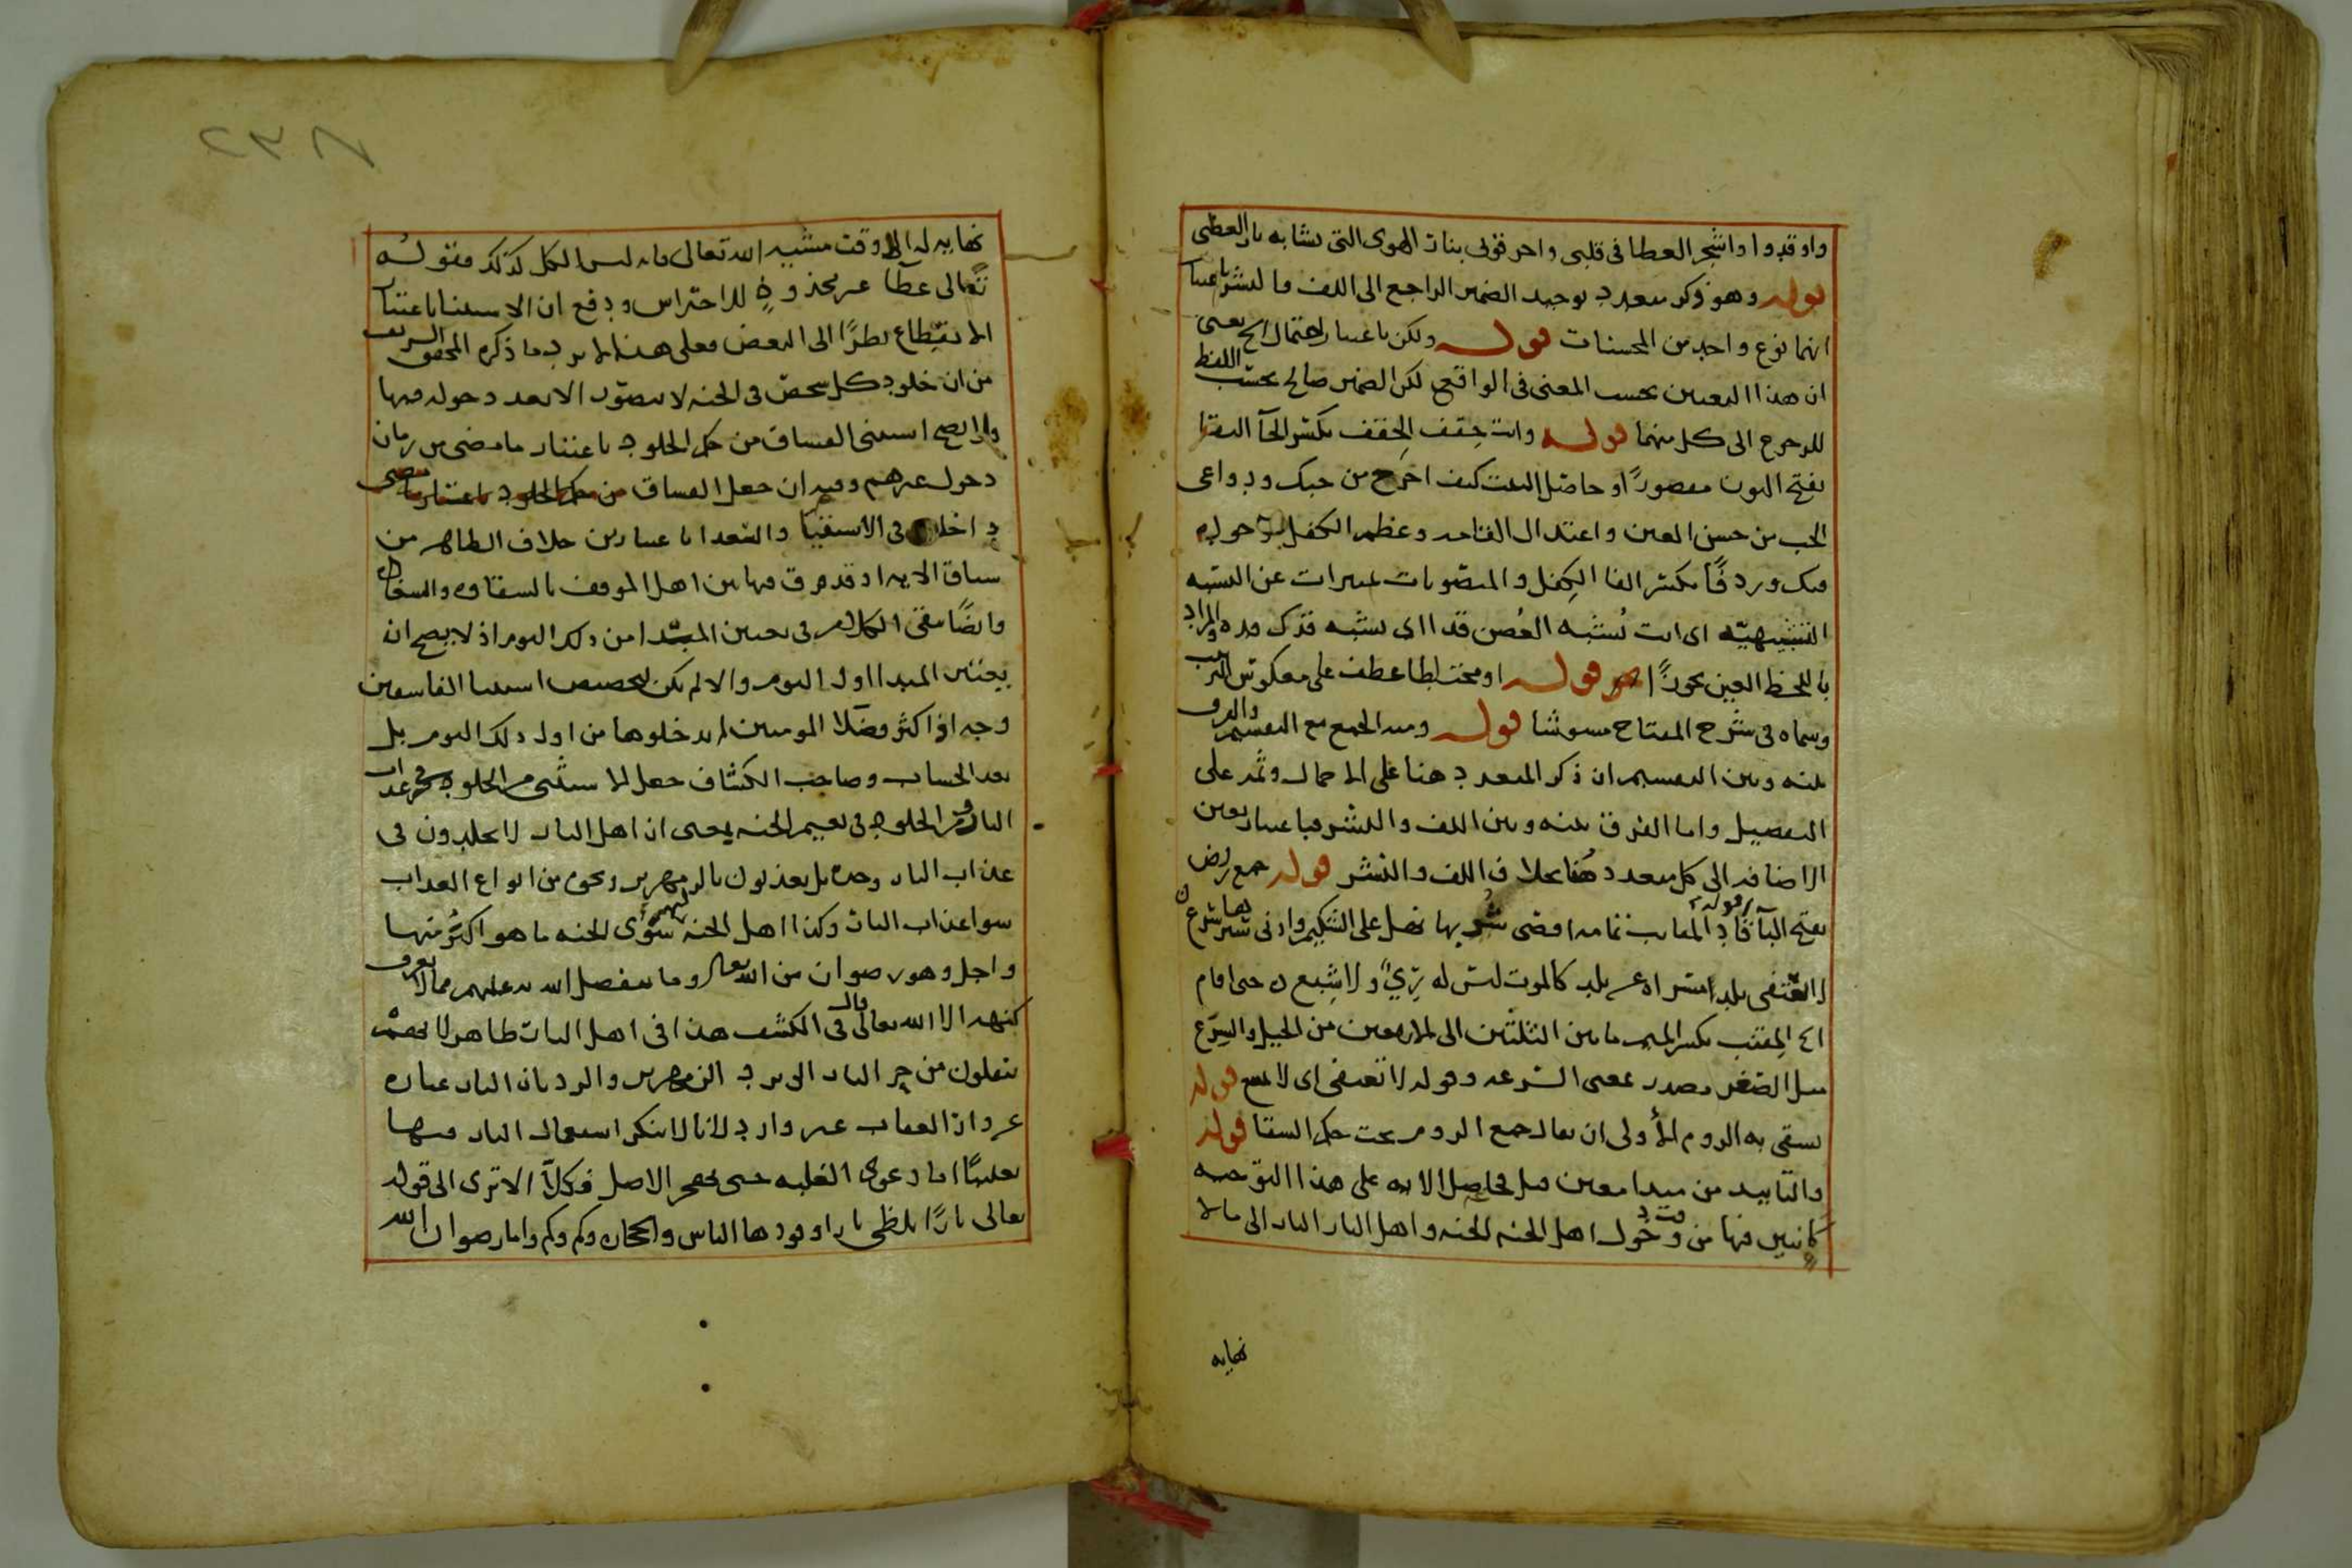 واوقدوا واشجر العطا فى قلبى واحرقونى بنات الهوى التى تشابه نار العظى
قوله وهو ذكر متعدد توحيد الضمير الراجع الى اللف والنشر باعتبار
انهما نوع واحد من المحسنات قوله ولكن باعتبار احتمال الخ يعنى
ان هذا التعيين بحسب المعنى فى الواقع لكن الضمير صالح بحسب اللفظ
للرجوع الى كل منهما قوله وانت حقف الحقف بكسر الحآ النقا
بفتح النون مقصورًا وحاصل البيت كيف اخرج من حبك ودواعى
الحب من حسن العين واعتدال القامه وعظم الكفل حوله
فيك وردفًا بكسر الفا الكفل والمنصوبات تميزات عن النسبه
التشبيهيّه اى انت تُشبه الغُصن قدا اى يشبه قدك قده والمراد
باللحظ العين تجوزًا قوله او مختلطا عطف على معكوس الترتيب
وسماه فى شرح المفتاح مشوشا قوله ومنه الجمع مع التقسيم والفرق
بينه وبين التقسيم ان ذكر المتعدد هنا على الاجمال وثمه على
التفصيل واما الفرق بينه وبين اللف والنشر فباعتبار تعيين
الاضافه الى كل متعدد هُنا بخلاف اللف والنشر قوله جمع ربض
بفتح البآ قوله قاد المقانب تمامه اقصى شربها نهل على الشكيم وادنى سيرها سرع
لا يعتقى بلد مسراه عن بلد كالموت ليس له رِيٌّ ولا شِبع حتى اقام
الخ المقنب بكسر الميم ما بين الثلثين الى الاربعين من الخيل والسِرَع
مثل الصغر مصدر بمعنى السرعه وقوله لا تعتقى اى لا يمنع قوله
تشقى به الروم الأولى ان يقال جمع الروم تحت حكم الشقا قوله
والتابيد من مبدا معين قيل فحاصل الايه على هذا التوجيه
كائنين فيها من وقت دخول اهل الجنه الجنه واهل النار النار الى ما لا
نهايه
٢٣٨
نهايه له الا وقت مشيه الله تعالى فانه ليس الكل كذلك فقوله
تعالى عطآ غير مجذوذٍ للاحتراس ودفع ان الاستثنا باعتبار
الانقطاع نظرًا الى البعض فعلى هذا لا يرد ما ذكره المحقق الشريف
من ان خلود كل شخص فى الجنه لا يتصوّر الا بعد دخوله فيها
ولا يصح استثنى الفساق من حكم الخلود باعتبار ما مضى من زمان
دخول غيرهم وفيه ان جعل الفساق من حكم الخلود باعتبار ما مضى
داخلا فى الاشقيا والسعدا باعتبارين خلاف الظاهر من
سياق الايه اذ قد فرق فيها بين اهل الموقف بالشقاوه والسعاده
وايضًا بقى الكلام فى تعيين المبتدا من ذلك اليوم اذ لا يصح ان
يعتبر المبدا اول اليوم والا لم يكن لتخصيص استثنا الفاسقين
وجه اذ اكثر فضلا المومنين لم يدخلوها من اول ذلك اليوم بل
بعد الحساب وصاحب الكشاف جعل الاستثنى من الخلود فى عذاب
النار ومن الخلود فى نعيم الجنه يعنى ان اهل النار لا يخلدون فى
عذاب النار وحده بل يعذبون بالزمهرير ونحوه من انواع العذاب
سوا عذاب النار وكذا اهل الجنه لهم سوى الجنه ما هو اكبر منها
واجل وهو رضوان من الله تعالى وما يتفضل الله به عليهم مما لا يعرف
كنهه الا الله تعالى قال فى الكشف هذا فى اهل النار ظاهر لانهم
ينقلون من حر النار الى برد الزمهرير والرد بان النار عباره
عن دار العقاب غير وارد لانا لا ننكر استعمال النار فيها
تغليبًا اما دعوى الغلبه حتى تهجر الاصل فكلّا الا ترى الى قوله
تعالى نارًا تلظى نارا وقودها الناس والحجاره وكم وكم واما رضوان الله